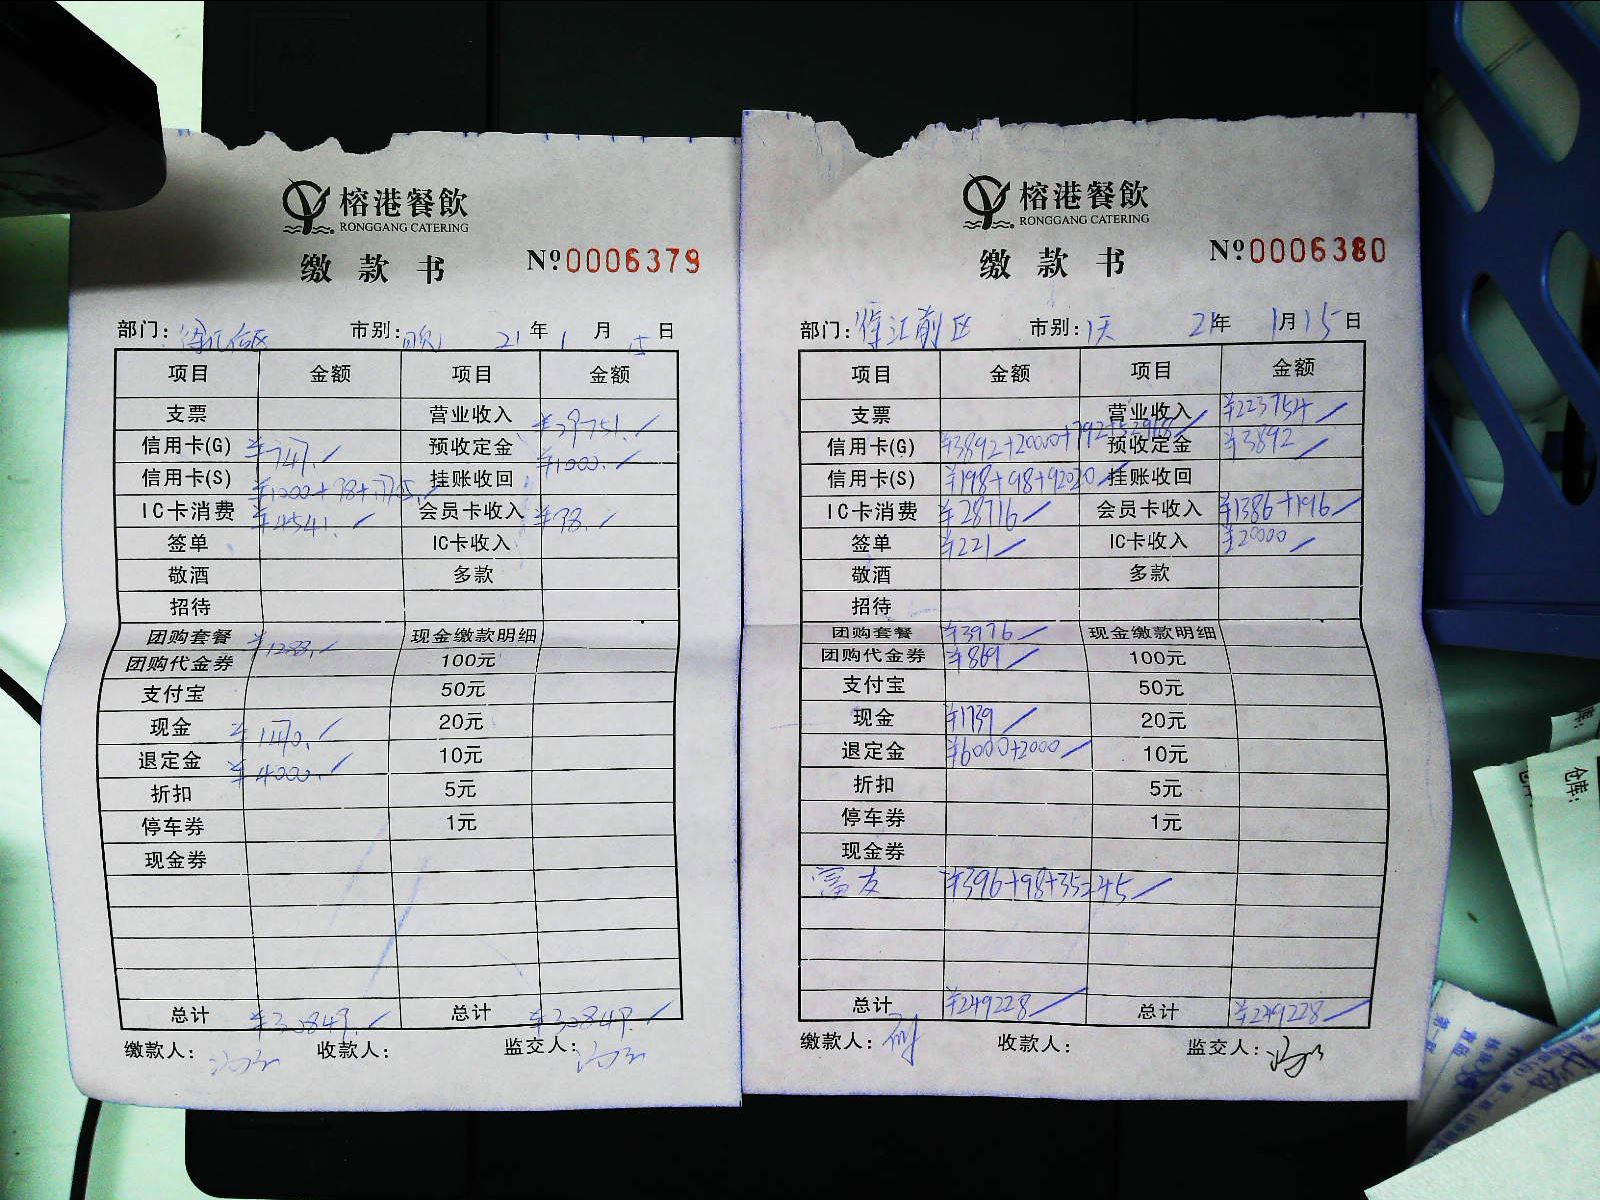 榕港餐飲
RONGGANG CATERING
缴款书 №0006379
部门: 市别: 21年1月15日
项目 金额 项目 金额
支票 营业收入
信用卡(G) ¥747. 预收定金 ¥1000.
信用卡(S) 挂账收回
IC卡消费 ¥4541. 会员卡收入 ¥98.
签单 IC卡收入
敬酒 多款
招待
团购套餐 ¥1288. 现金缴款明细
团购代金券 100元
支付宝 50元
现金 20元
退定金 ¥4000. 10元
折扣 5元
停车券 1元
现金券
总计 ¥30849. 总计 ¥30849.
缴款人: 收款人: 监交人:
榕港餐飲
RONGGANG CATERING
缴款书 №0006380
部门:徐汇前区 市别:1天 21年1月15日
项目 金额 项目 金额
支票 营业收入 ¥223754
信用卡(G) ¥3892+20000+792+52968 预收定金 ¥3892
信用卡(S) ¥198+98+92020 挂账收回
IC卡消费 ¥28716 会员卡收入 ¥1386+196
签单 ¥221 IC卡收入 ¥20000
敬酒 多款
招待
团购套餐 ¥3976 现金缴款明细
团购代金券 ¥869 100元
支付宝 50元
现金 ¥1739 20元
退定金 ¥6000+2000 10元
折扣 5元
停车券 1元
现金券
富友 ¥396+98+35245
总计 ¥249228 总计 ¥249228
缴款人: 收款人: 监交人:
仓库: